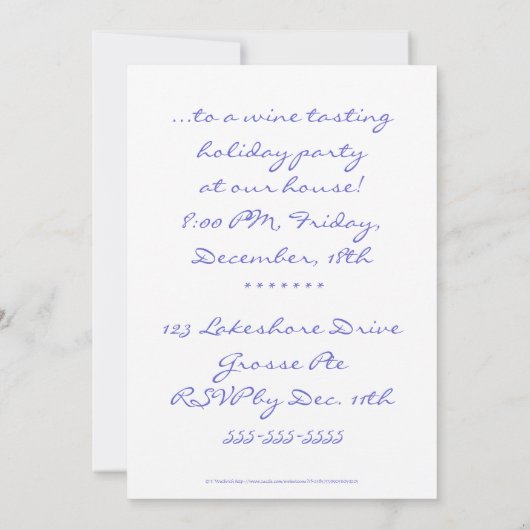 ...to a wine tasting
holiday party
at our house!
8:00 PM, Friday,
December, 18th
*******
123 Lakeshore Drive
Grosse Pte
RSVP by Dec. 11th
555-555-5555